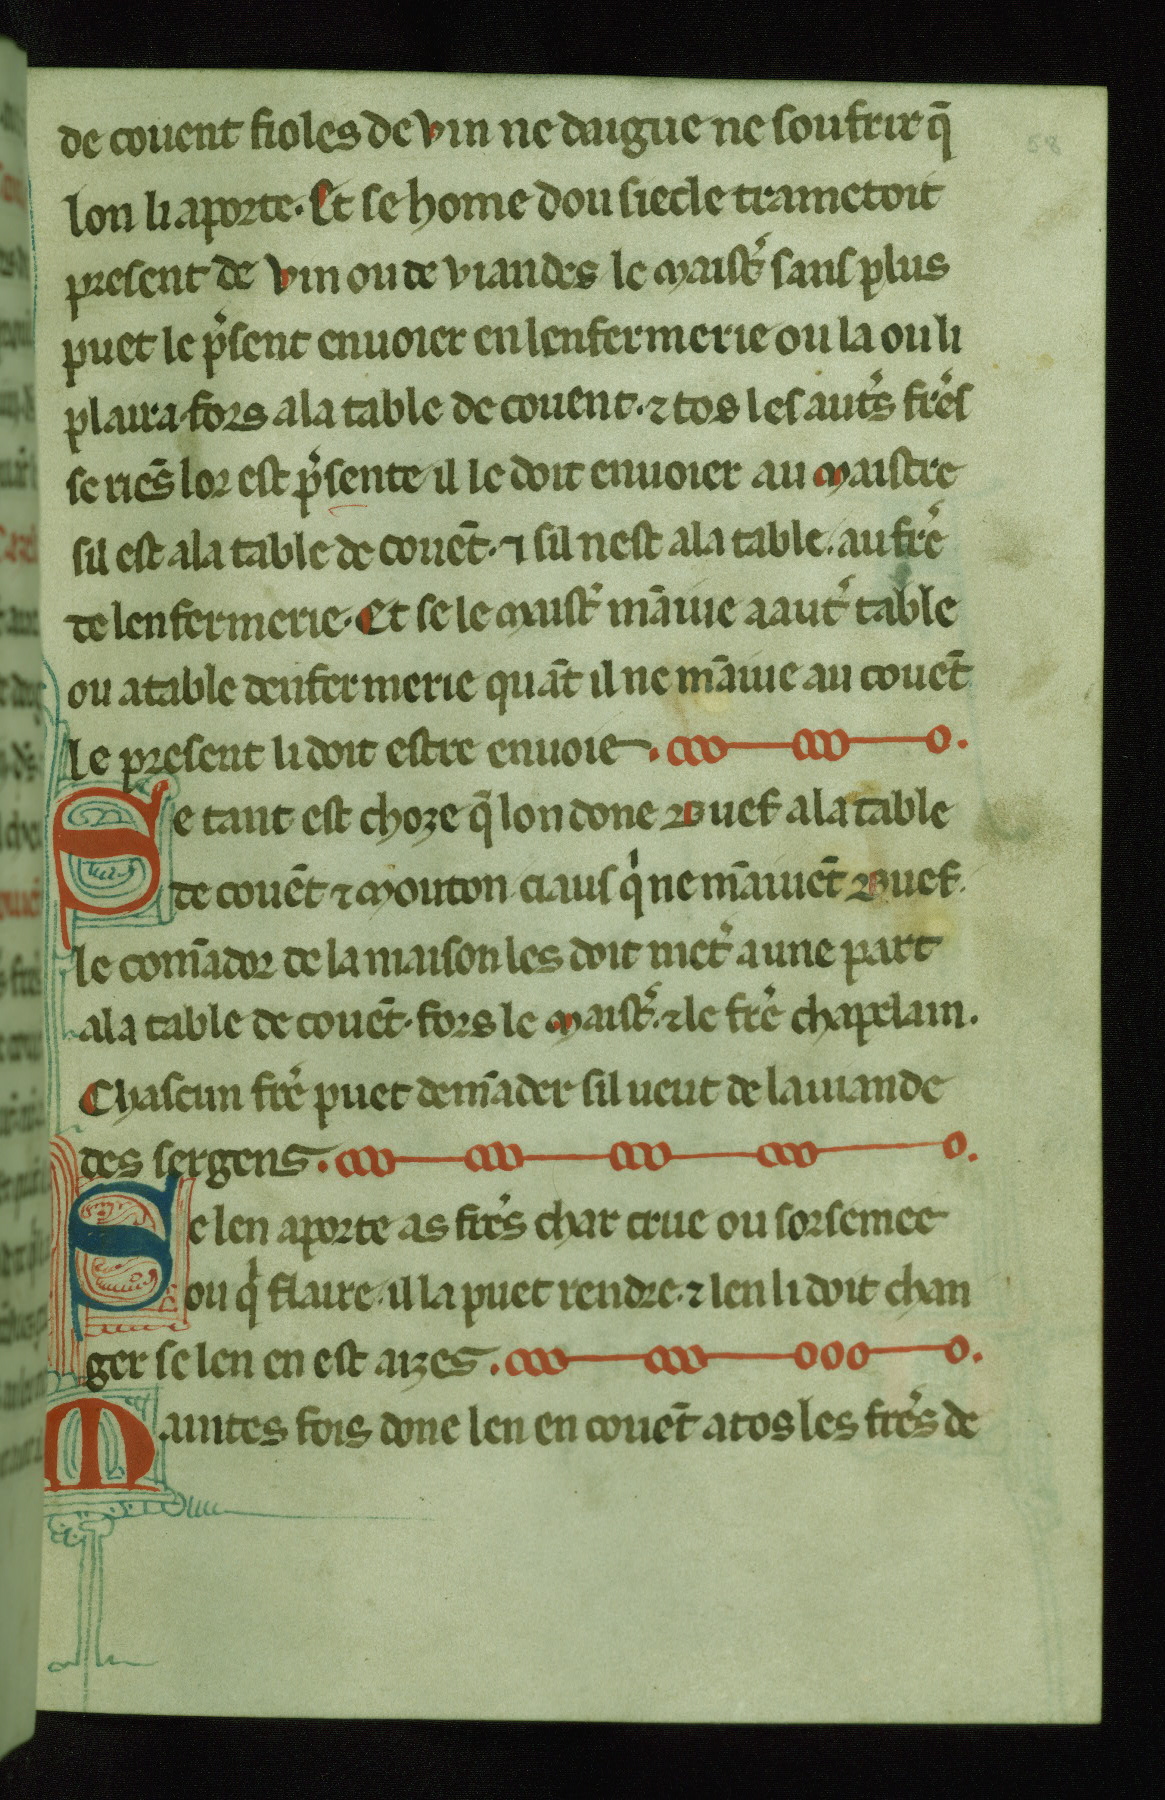 58
de couent fioles de vin ne daigne ne soufrir q̄
lon li aporte. Et se home dou siecle trametoit
present de vin ou de viandes le maist̉ sans plus
puet le p̉sent enuoier en lenfermerie ou la ou li
plaira. fors a la table de couent. ⁊ tos les aut̉s frẻs
se riēs lor est p̉sente il le doit enuoier au maistre
sil est a la table de couēt. ⁊ sil nest a la table. au frẻ
de lenfermerie. Et se le maist̉ māiue a aut̉ table
ou a table denfermerie quāt il ne māiue au couēt
le present li doit estre enuoie.
Se tant est choze q̄ lon done buef a la table
de couēt ⁊ mouton ciaus qͥ ne māiuēt buef.
le comādor de la maison les doit met̉ a une part
a la table de couēt. fors le maist̉. ⁊ le frẻ chapelain.
Chascun frẻ puet demāder sil ueut de la uiande
des sergens.
Se len aporte as frẻs char crue ou sorsemee
ou qͥ flaire. il la puet rendre. ⁊ len li doit chan
ger se len en est aizes.
Maintes fois done len en couēt a tos les frẻs de